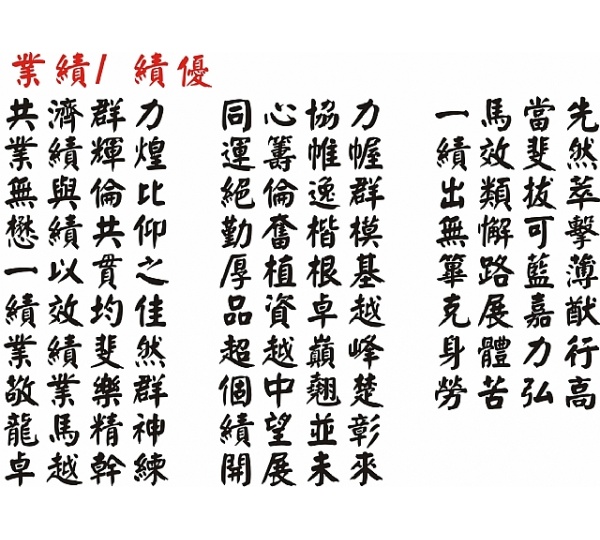 業績/績優
共濟群力
業績輝煌
無與倫比
懋績共仰
一以貫之
績效均佳
業績斐然
敬業樂群
龍馬精神
卓越幹練
同心協力
運籌帷幄
絕倫逸群
勤奮楷模
厚植根基
品資卓越
超越巔峰
個中翹楚
績望並彰
開展未來
一馬當先
績效斐然
出類拔萃
無懈可擊
篳路藍薄
克展嘉猷
身體力行
勞苦弘高